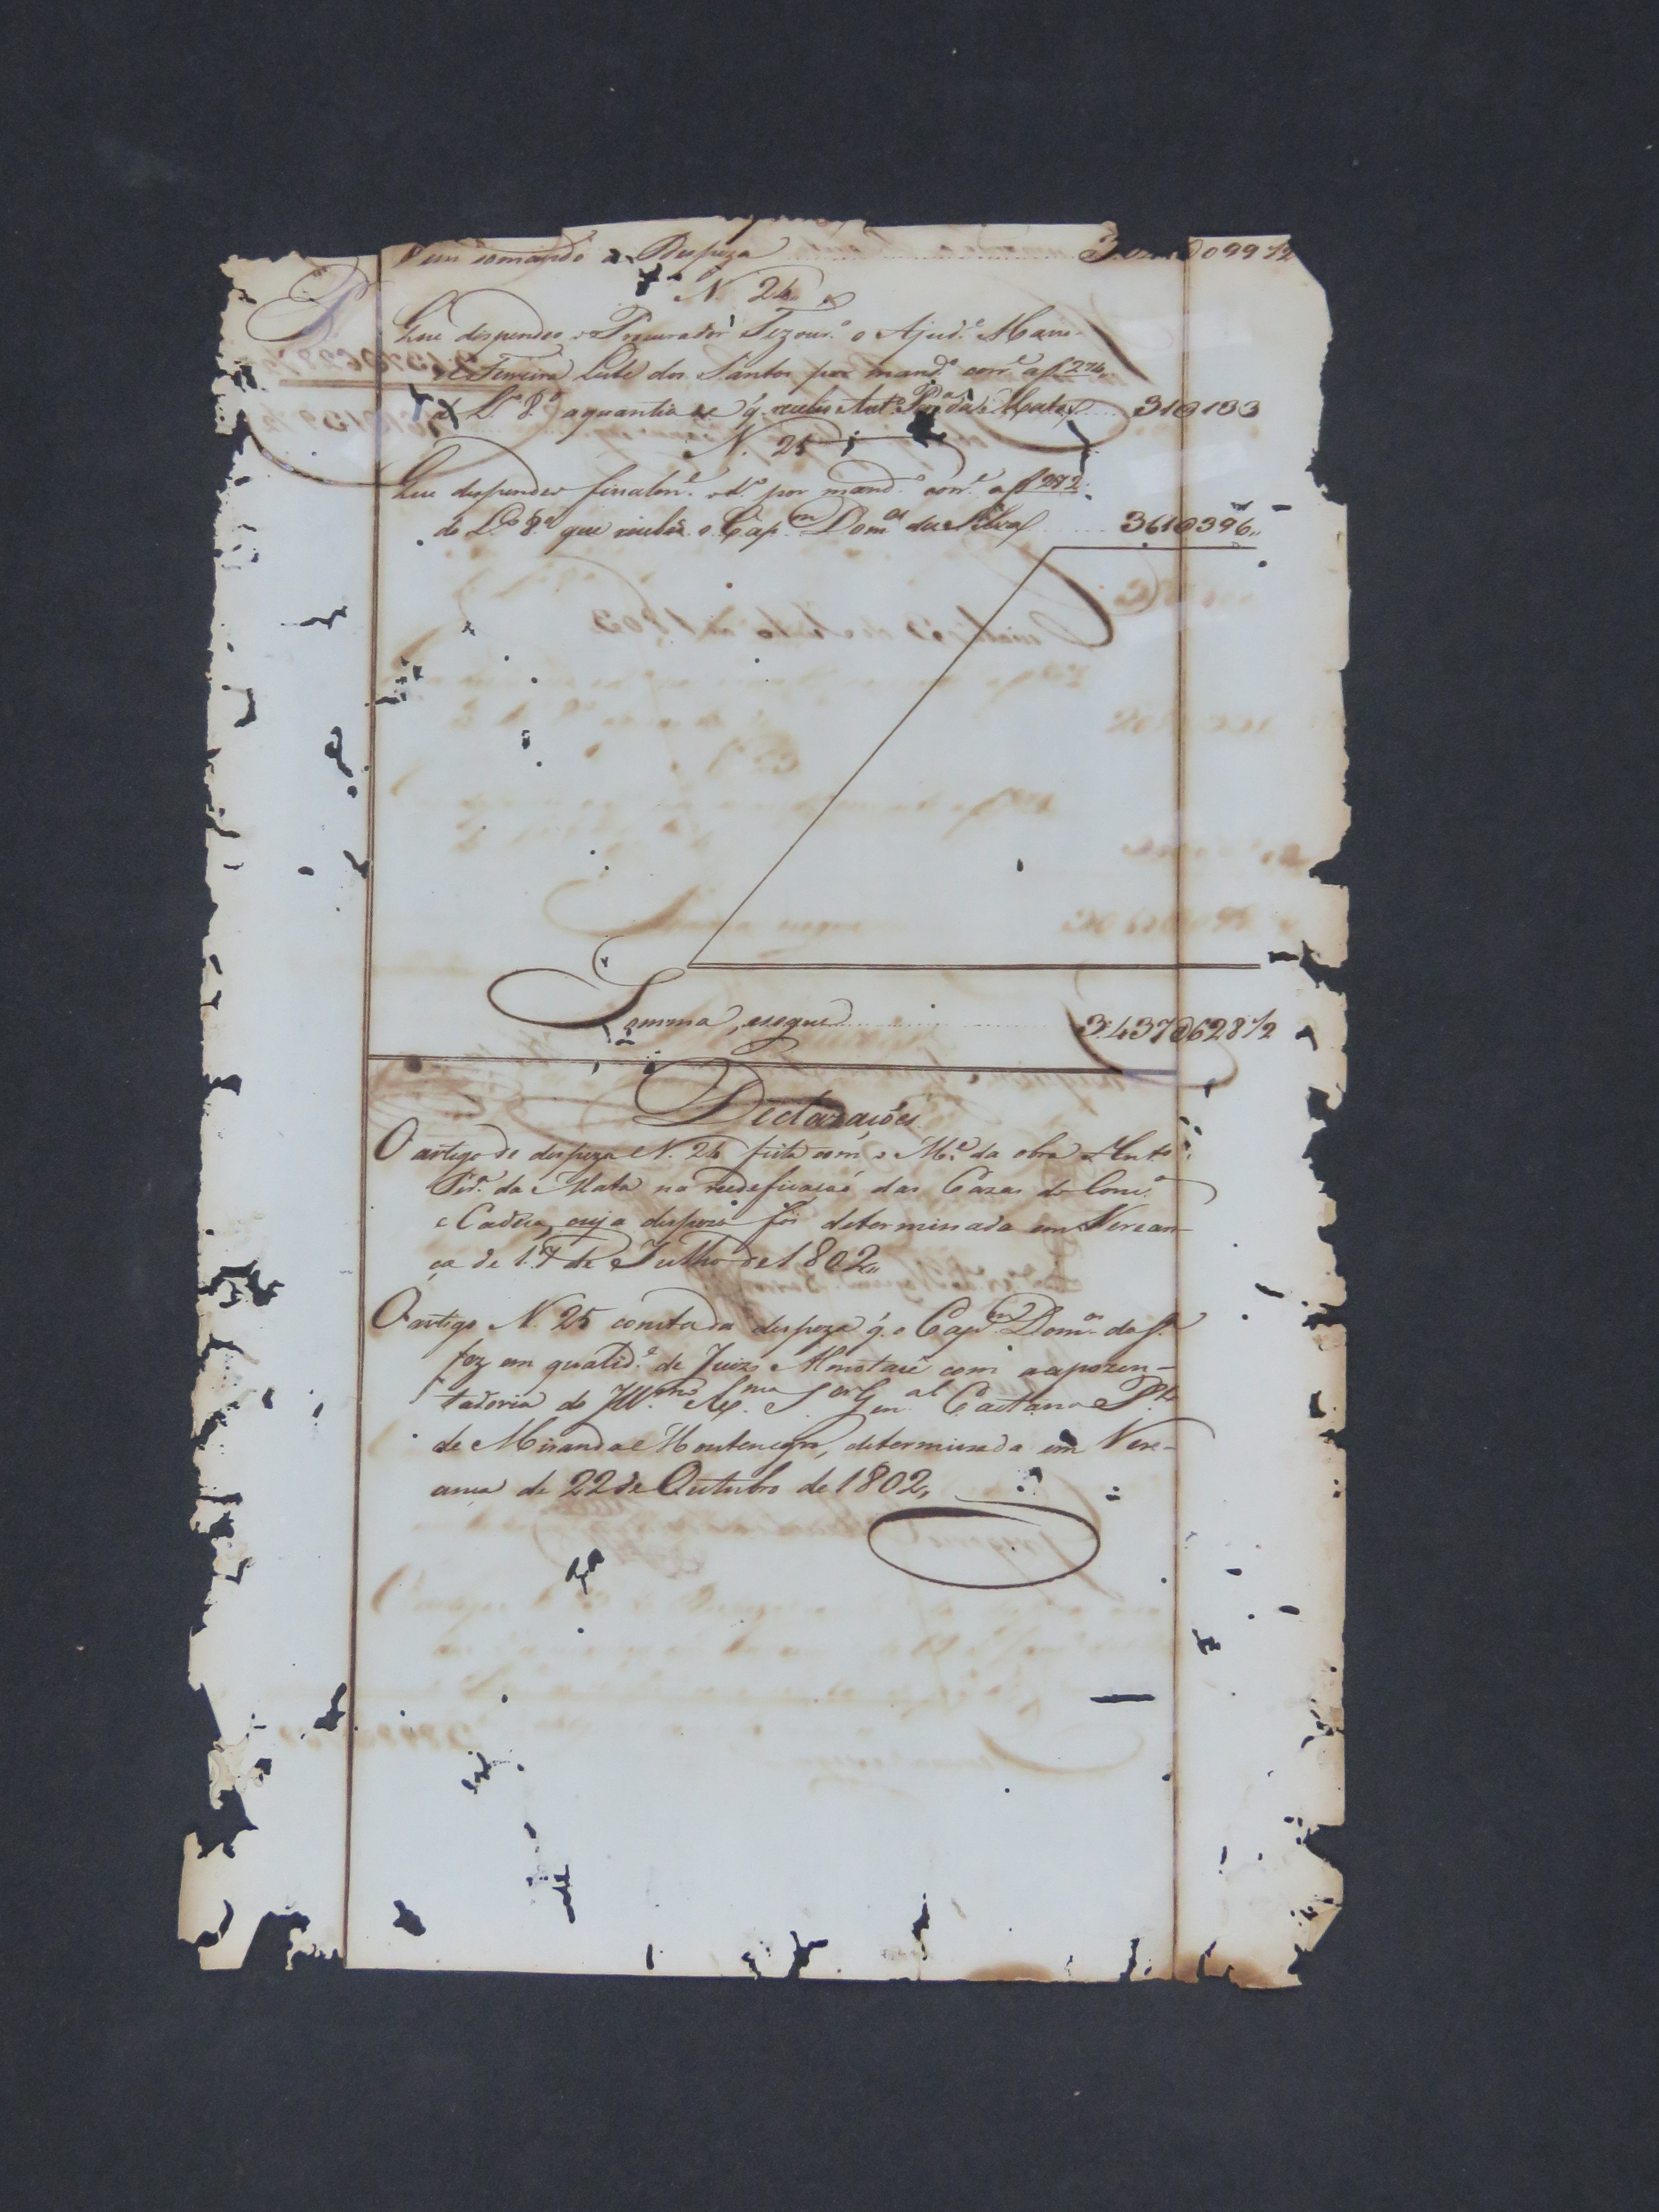 Vem somando a Despeza
N.º 24
Que dispendeo o Procurador Tezour.º o Ajud.e
Ferreira Leite dos Santos por mand.º corr.e a f 274
a quantia q. recebeo Ant.º Per.ª da Mata 31@133
N. 25
Que dispendeo finalm.e o d.º por mand.º corr.e a f 272
do L.º 8.º que recebeo o Cap.m Dom.os da Silva 361@396,,
Somma, e segue 3:437@628 1/2
Declaraçoés
O artigo de despeza N. 24 feita com o M.e da obra Ant.º
Per.ª da Mata na redeficaçaõ das Cazas do Conc.º
e Cadea, cuja despeza foi determinada em Verean-
ça de 17 de Julho de 1802,,
O artigo N. 25 consta da despeza q. o Cap.m Dom.os da S.ª
fez em qualid.e de Juiz Almotacé com a apozen-
tadoria do Ill.mo Ex.mo S.or Gen.al Caetano P.to
de Miranda e Montenegro, determinada em Vere-
ança de 22 de Outubro de 1802,,